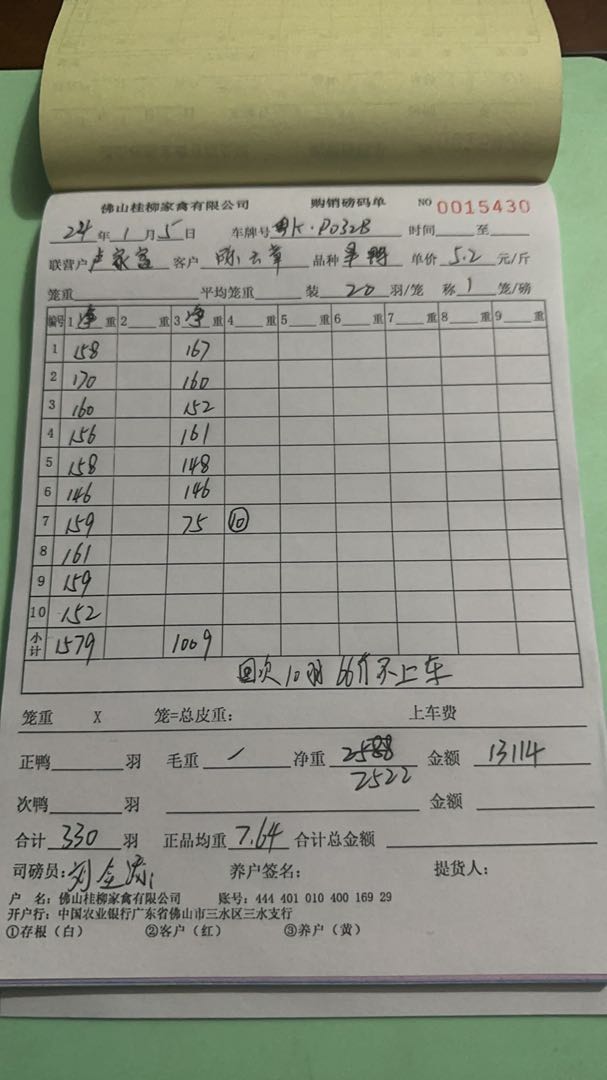 佛山桂柳家禽有限公司 购销磅码单 NO 0015430
24年1月5日 车牌号粤K·P0328 时间 至
联营户卢家富 客户 品种 单价5.2元/斤
笼重 平均笼重 装20羽/笼 称1笼/磅
编号 1净重 2重 3净重 4重 5重 6重 7重 8重 9重
1 158 167
2 170 160
3 160 152
4 156 161
5 158 148
6 146 146
7 159 75 ⑩
8 161
9 159
10 152
小计 1579 1009
回次10羽66斤不上车
笼重 X 笼=总皮重: 上车费
正鸭 羽 毛重 / 净重 2588 金额 13114
2522
次鸭 羽 金额
合计 330 羽 正品均重 7.64 合计总金额
司磅员: 养户签名: 提货人:
户 名: 佛山桂柳家禽有限公司 账号: 444 401 010 400 169 29
开户行: 中国农业银行广东省佛山市三水区三水支行
①存根(白) ②客户(红) ③养户(黄)